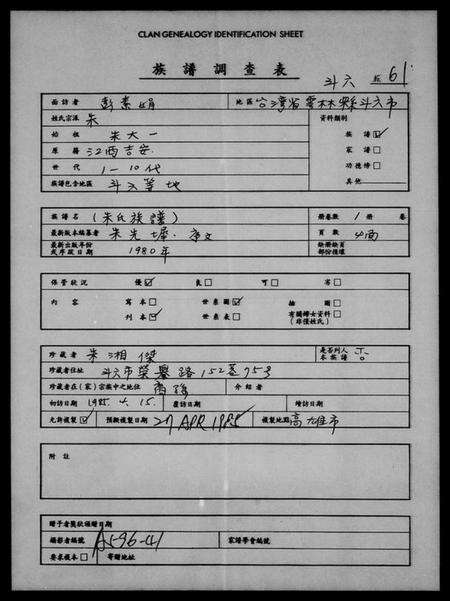 CLAN GENEALOGY IDENTIFICATION SHEET
族譜調查表
斗六 61
面訪者 彭素娟 地區 台灣省雲林縣斗六市
姓氏宗派 朱 資料類別
始祖 朱大一 族譜☑
原籍 江西吉安 家譜□
世代 1-10代 功德榜□
族譜包含地區 斗六等地 其他
族譜名 (朱氏族譜) 冊卷數 1 冊 卷
最新版本編纂者 朱先墀 頁數 4面
最新出版年份或序跋日期 1980年 缺損缺頁部份後漢
保管狀況 優☑ 良□ 可□ 劣□
內容 寫本□ 世系圖☑ 插圖□
刊本☑ 世系表□ 有關婦女資料□(非僅姓氏)
珍藏者 朱湘傑 是否列入本族譜
珍藏者住址 斗六市榮譽路152巷75号
珍藏者在(家)宗族中之地位 裔孫 介紹者
初訪日期 1985.4.15. 覆訪日期 續訪日期
允許複製☑ 預擬複製日期 27 APR 1985 複製地點 高雄市
附註
贈予者獎狀頒贈日期
攝影者編號 A596-41 家譜學會編號
要求複本□ 寄贈地址